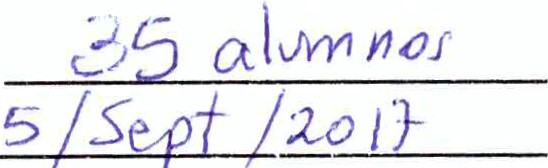 35 alumnos
5/Sept/2017